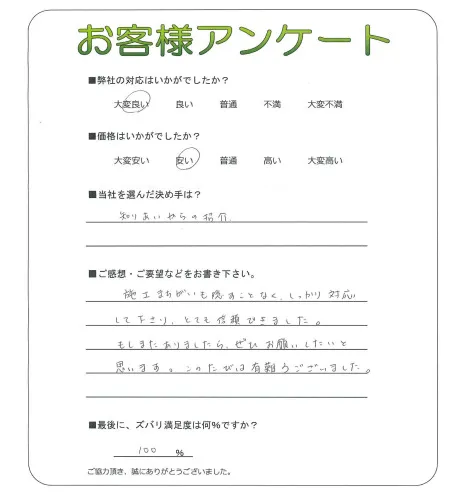 お客様アンケート
■弊社の対応はいかがでしたか？
大変良い 良い 普通 不満 大変不満
■価格はいかがでしたか？
大変安い 安い 普通 高い 大変高い
■当社を選んだ決め手は？
知りあいからの紹介
■ご感想・ご要望などをお書き下さい。
施工まちがいも隠すことなく、しっかり対応
して下さり、とても信頼できました。
もしまたありましたら、ぜひお願いしたいと
思います。このたびは有難うございました。
■最後に、ズバリ満足度は何％ですか？
100 ％
ご協力頂き、誠にありがとうございました。